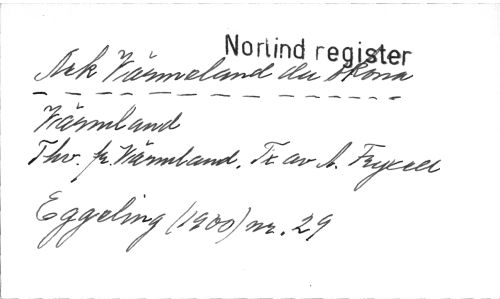 Norlind register
Ack Värmeland du sköna
Värmland
Thv. fr. Värmland. Tx av A. Fryxell
Eggeling (1900) nr. 29